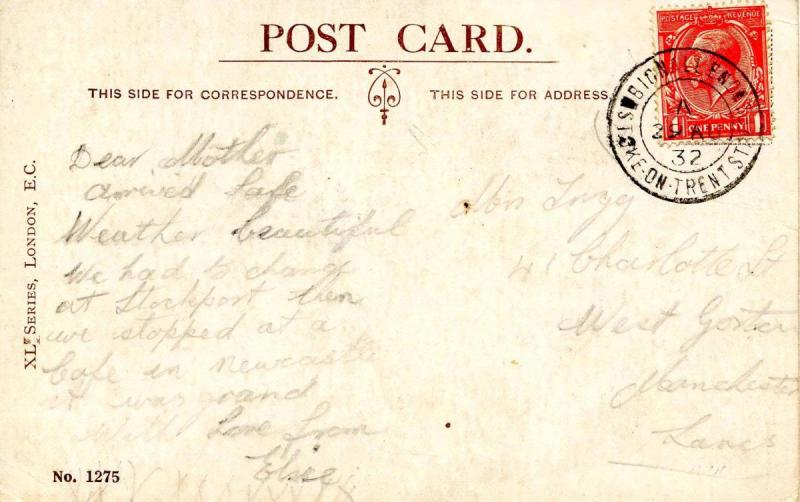 POST CARD.
THIS SIDE FOR CORRESPONDENCE.
THIS SIDE FOR ADDRESS
POSTAGE REVENUE
ONE PENNY
STOKE-ON-TRENT
A
29
32
XL SERIES, LONDON, E.C.
Dear Mother
arrived Safe
Weather beautiful
We had to change
at Stockport then
we stopped at a
Cafe in Newcastle
it was grand
With Love from
Elsie
Mrs
41 Charlotte St
West Gorton
Manchester
Lancs
No. 1275